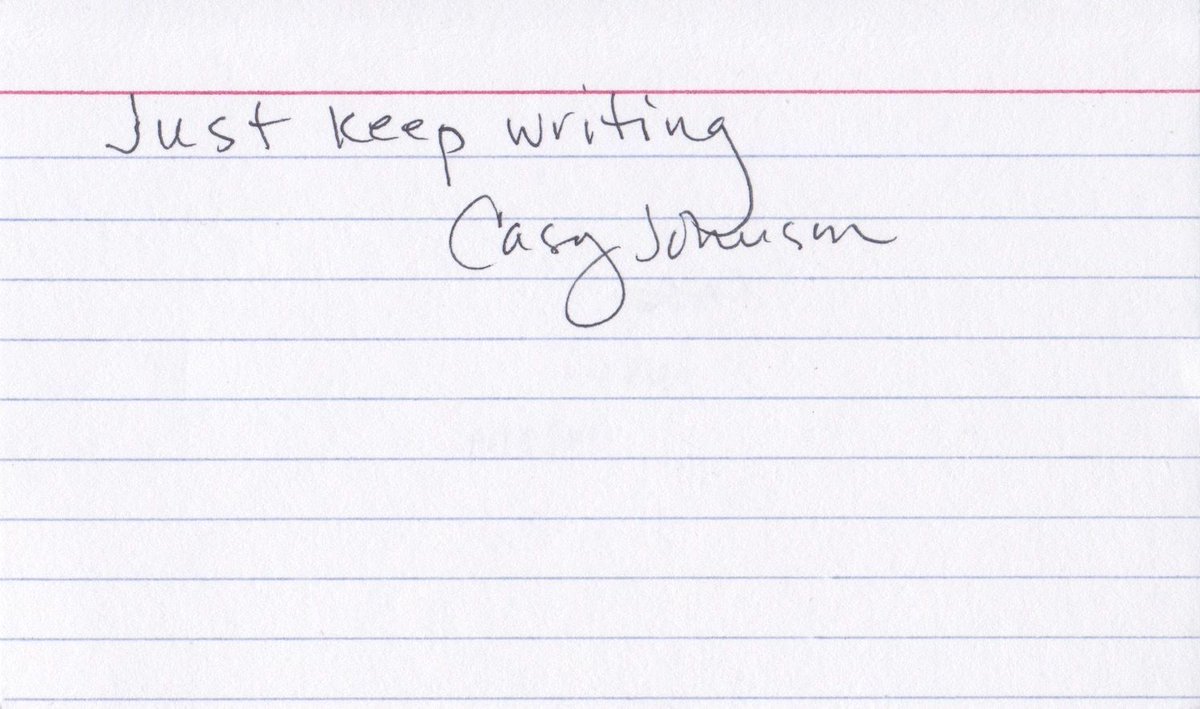 Just keep writing
Casey Johnson